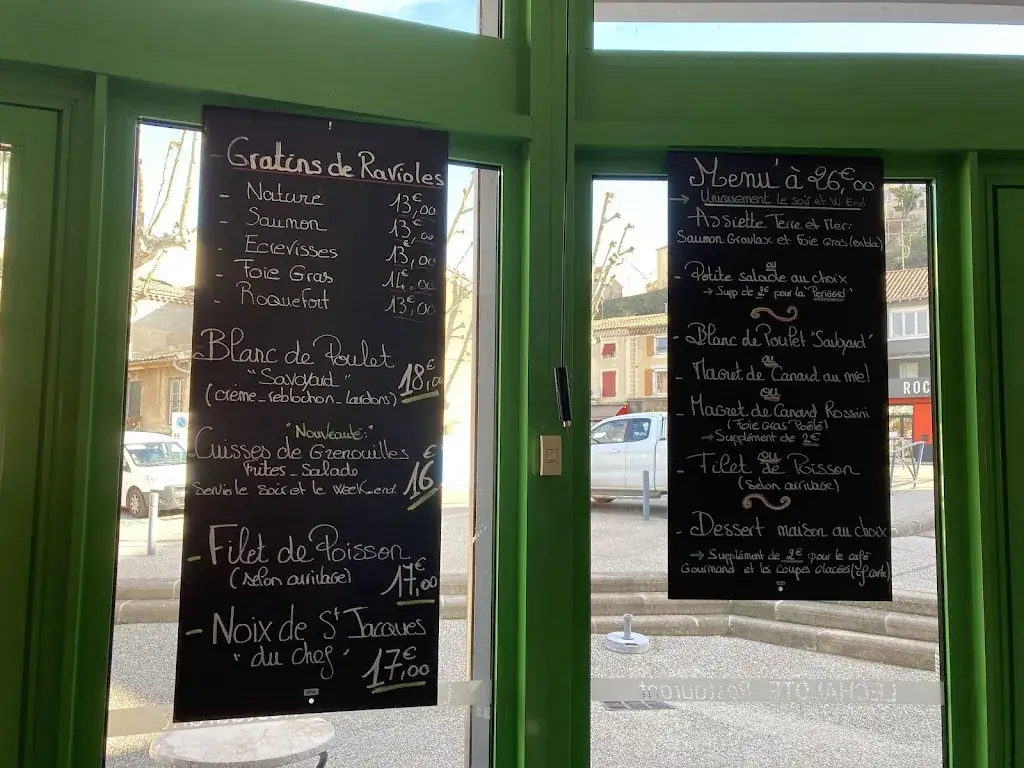 Gratins de Ravioles
- Nature 13€,00
- Saumon 13€,00
- Ecrevisses 13€,00
- Foie Gras 14€,00
- Roquefort 13€,00
Blanc de Poulet
"Savoyard" 18€,00
(crème_reblochon_lardons)
"Nouveauté:"
Cuisses de Grenouilles
frites_salade 16€
servies le soir et le week_end.
- Filet de Poisson
(selon arrivage) 17€,00
- Noix de St Jacques
"du chef" 17€,00
Menu à 26€,00
→ Uniquement le soir et W.End
- Assiette Terre et Mer:
Saumon Gravlax et Foie Gras (entble)
ou
- Petite salade au choix
→ Supp de 2€ pour la "Périgord"
- Blanc de Poulet "Savoyard"
ou
- Magret de Canard au miel
ou
- Magret de Canard Rossini
(Foie Gras Poêlé)
→ Supplément de 2€
ou
- Filet de Poisson
(selon arrivage)
- Dessert maison au choix
→ Supplément de 2€ pour le café
Gourmand et les coupes glacées (cf.carte)
ROC
LECHALOTE Restaurant